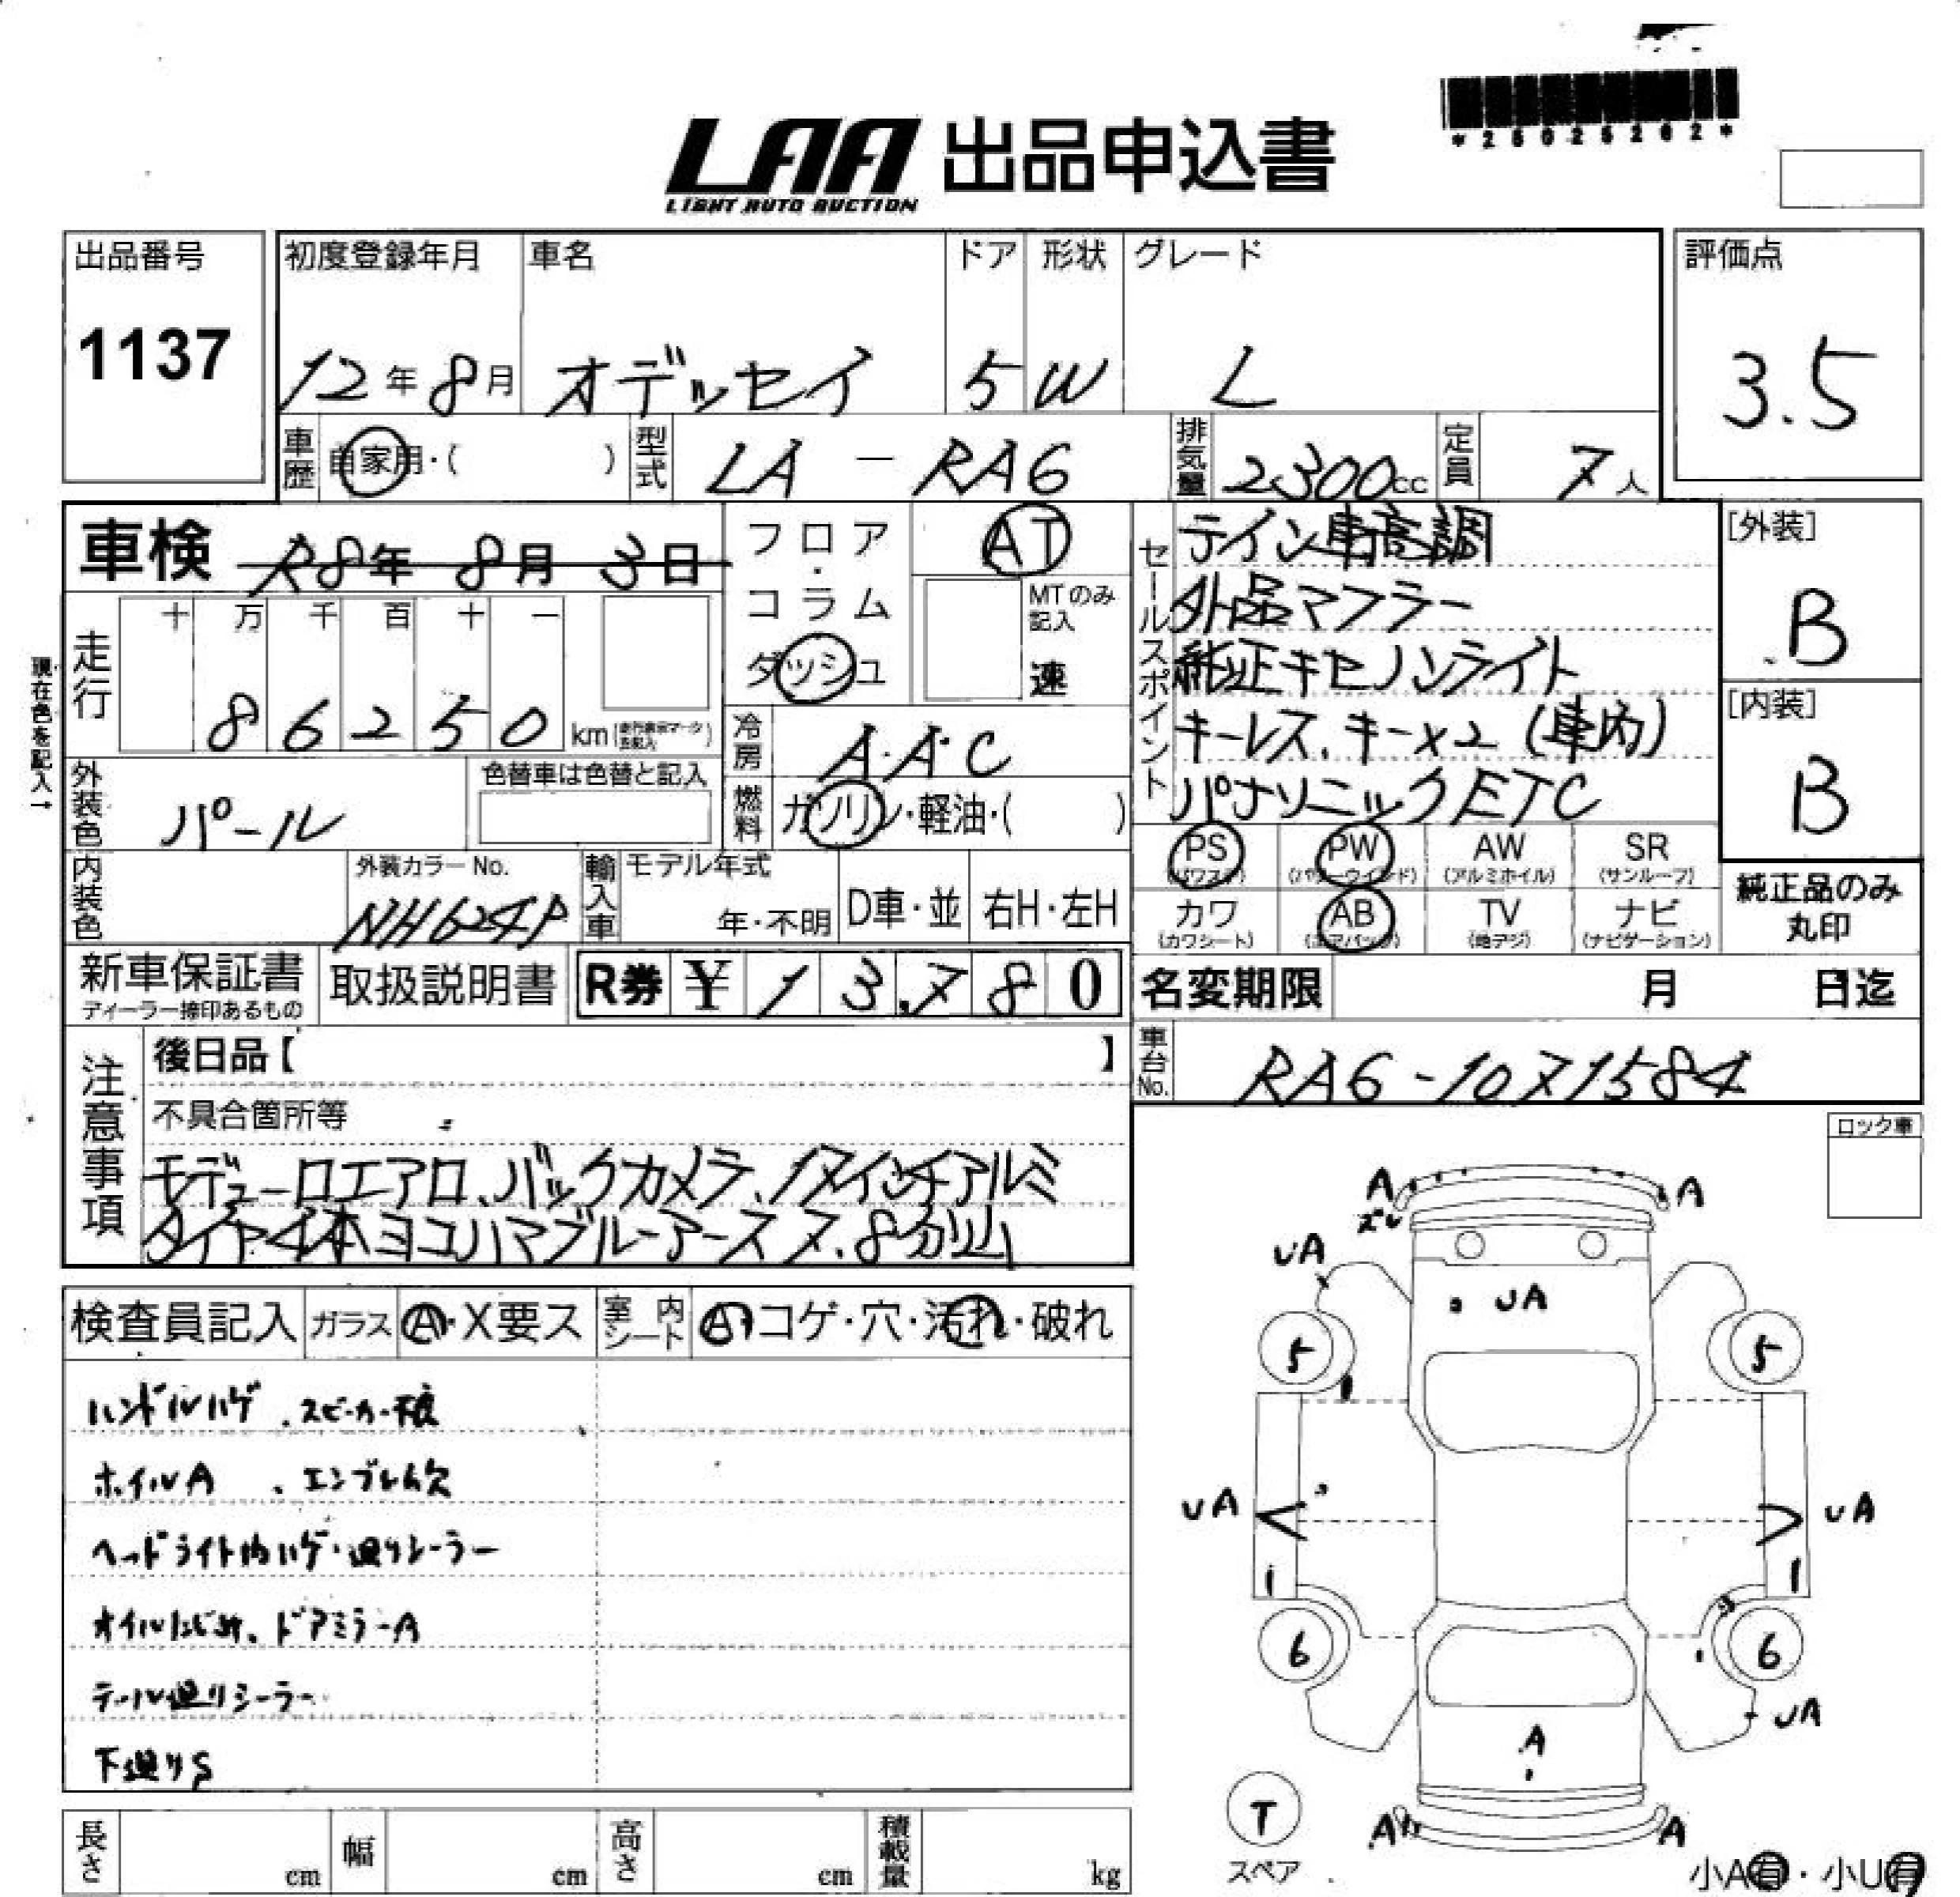 *26026202*
LAA 出品申込書
LIGHT AUTO AUCTION
出品番号 初度登録年月 車名 ドア 形状 グレード 評価点
1137 12年 8月 オデッセイ 5 W L 3.5
車歴 自家用・( ) 型式 LA - RA6 排気量 2300cc 定員 7人
車検 R8年 8月 3日
フロア・コラム
ダッシュ
AT
MTのみ記入
速
走行 十 万 千 百 十 一
86250 km
現在色を記入→
冷房 A.A.C
外装色 パール
色替車は色替と記入
燃料 ガソリン・軽油・( )
内装色
外装カラーNo.
NH624P
輸入車 モデル年式
年・不明 D車・並 右H・左H
セールスポイント
テイン車高調
外品マフラー
純正キセノンライト
キーレス、キー×2 (車内)
パナソニックETC
[外装]
B
[内装]
B
PS PW AW SR
(パワステ) (パワーウインド) (アルミホイル) (サンルーフ)
カワ AB TV ナビ
(カワシート) (エアバック) (地デジ) (ナビゲーション)
純正品のみ
丸印
新車保証書 取扱説明書 R券 ¥13,780
ディーラー捺印あるもの
名変期限 月 日迄
車台No. RA6-1071584
注意事項
後日品【 】
不具合箇所等
モデューロエアロ、バックカメラ、17インチアルミ
タイヤ4本ヨコハマブルーアース 7、8分山
ロック車
検査員記入 ガラス A・X要ス 室内シート A コゲ・穴・汚れ・破れ
ハンドルハゲ、スピーカー不良
ホイルA 、エンブレム欠
ヘッドライト内ハゲ・廻りシーラー
オイルにじみ、ドアミラーA
テール廻りシーラー
下廻りS
A A
ズレ
UA
UA
5 5
UA UA
6 6
UA
A
T
A A
スペア
小A有・小U有
長さ cm 幅 cm 高さ cm 積載量 kg